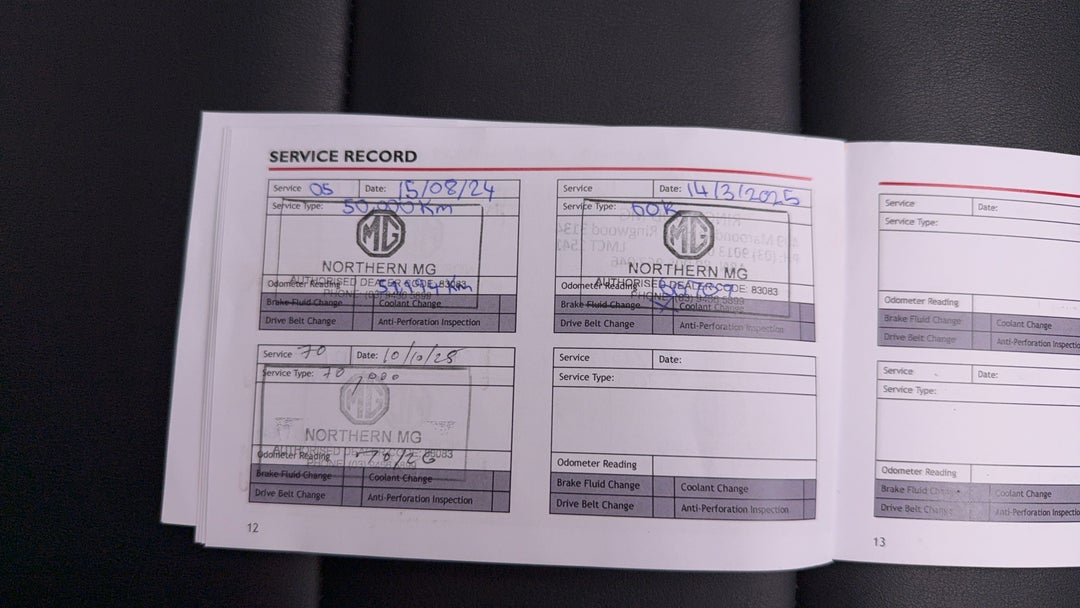 SERVICE RECORD
Service 05 Date: 15/08/24
Service Type: 50,000 Km
MG
NORTHERN MG
AUTHORISED DEALER CODE: 83083
Odometer Reading Km
PHONE (03) 9456 5899
Brake Fluid Change Coolant Change
Drive Belt Change Anti-Perforation Inspection
Service Date: 14/3/2025
Service Type: 60K
MG
NORTHERN MG
AUTHORISED DEALER CODE: 83083
Odometer Reading
PHONE (03) 9456 5899
Brake Fluid Change Coolant Change
Drive Belt Change Anti-Perforation Inspection
Service 70 Date: 10/10/25
Service Type: 70,000
MG
NORTHERN MG
AUTHORISED DEALER CODE: 83083
Odometer Reading
Brake Fluid Change Coolant Change
Drive Belt Change Anti-Perforation Inspection
Service Date:
Service Type:
Odometer Reading
Brake Fluid Change Coolant Change
Drive Belt Change Anti-Perforation Inspection
12
Service Date:
Service Type:
Odometer Reading
Brake Fluid Change Coolant Change
Drive Belt Change Anti-Perforation Inspectio
Service Date:
Service Type:
Odometer Reading
Brake Fluid Change Coolant Change
Drive Belt Change Anti-Perforation Inspectio
13